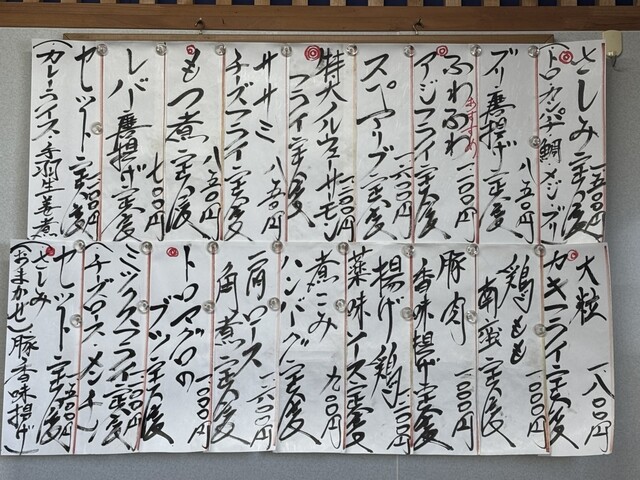 さしみ定食 一五〇〇円
(トロ カンパチ 鯛 メジ ブリ)
ブリ唐揚げ定食 八五〇円
ふわふわ
おすすめ
アジフライ定食 一一〇〇円
スペアリブ定食 一六〇〇円
特大ノルウェーサーモン
フライ定食 一二〇〇円
ササミ
チーズフライ定食 八五〇円
もつ煮定食 八五〇円
レバー唐揚げ定食 七〇〇円
セット定食 一二〇〇円
(カレーライス・手羽
大粒
カキフライ定食 一八〇〇円
鶏もも
南蛮定食 一〇〇〇円
豚肉
香味揚げ定食 一〇〇〇円
揚げ鶏
薬味ソース定食 一一〇〇円
煮こみ
ハンバーグ定食 九〇〇円
肩ロース
角煮定食 一六〇〇円
トロマグロの
ブツ定食 一〇〇〇円
ミックスフライ定食 一二〇〇円
(チーズ ロース メンチ)
セット定食 一五〇〇円
さしみ
(おまかせ) 豚香味揚げ)